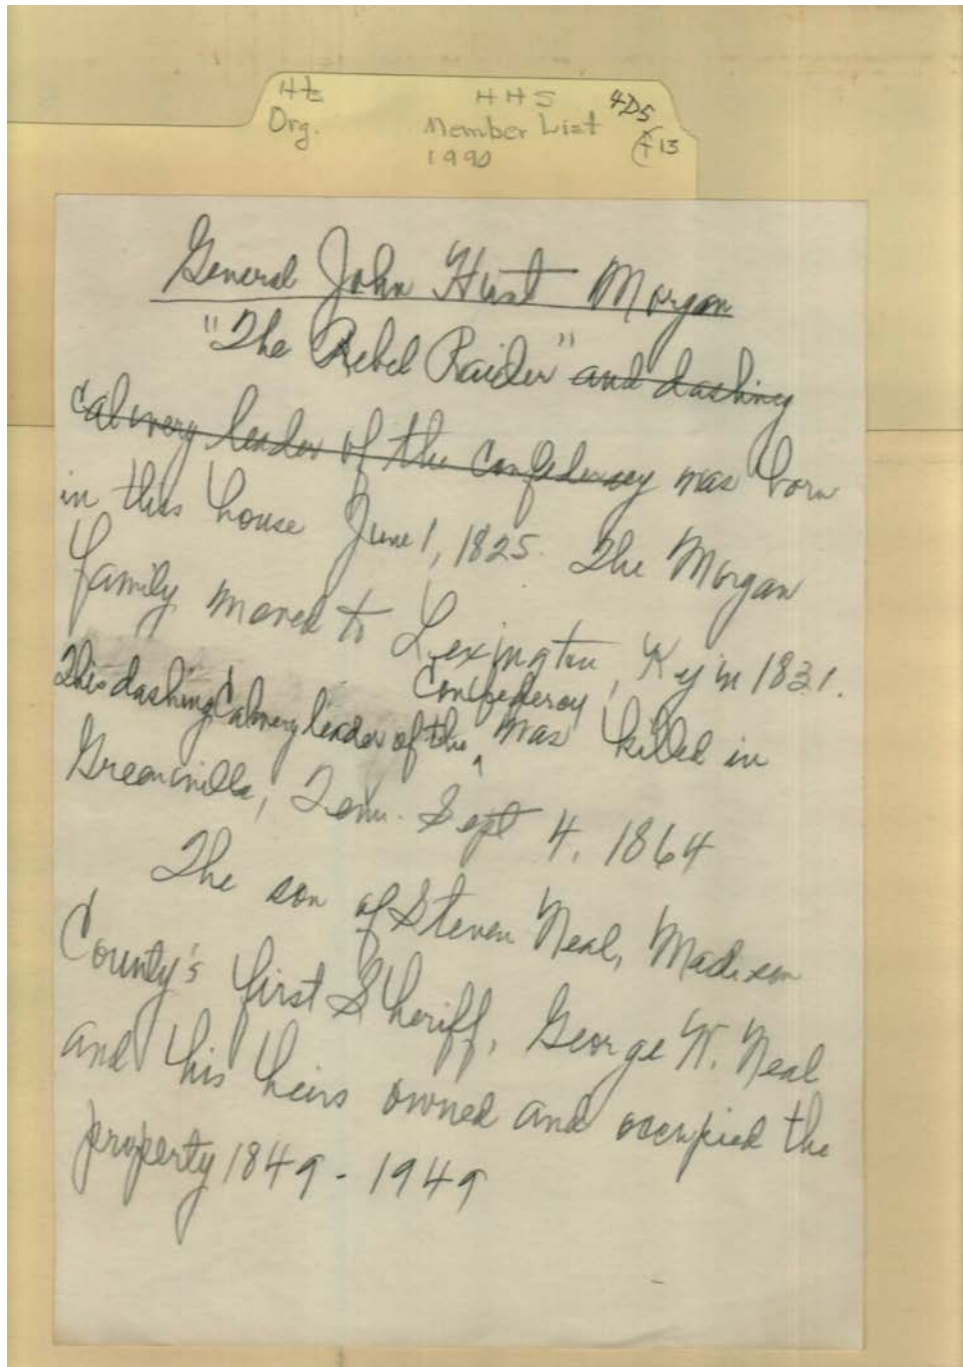 Hts HHS 4D5
Org. Member List f13
1990
General John Hunt Morgan
"The Rebel Raider" and dashing
Calvary leader of the Confederacy was born
in this house June 1, 1825. The Morgan
family moved to Lexington, Ky in 1831.
Confederacy
This dashing Calvary leader of the ^ was killed in
Greenville, Tenn. Sept 4, 1864
The son of Steven Neal, Madison
County's first Sheriff, George W. Neal
and his heirs owned and occupied the
property 1849 - 1949